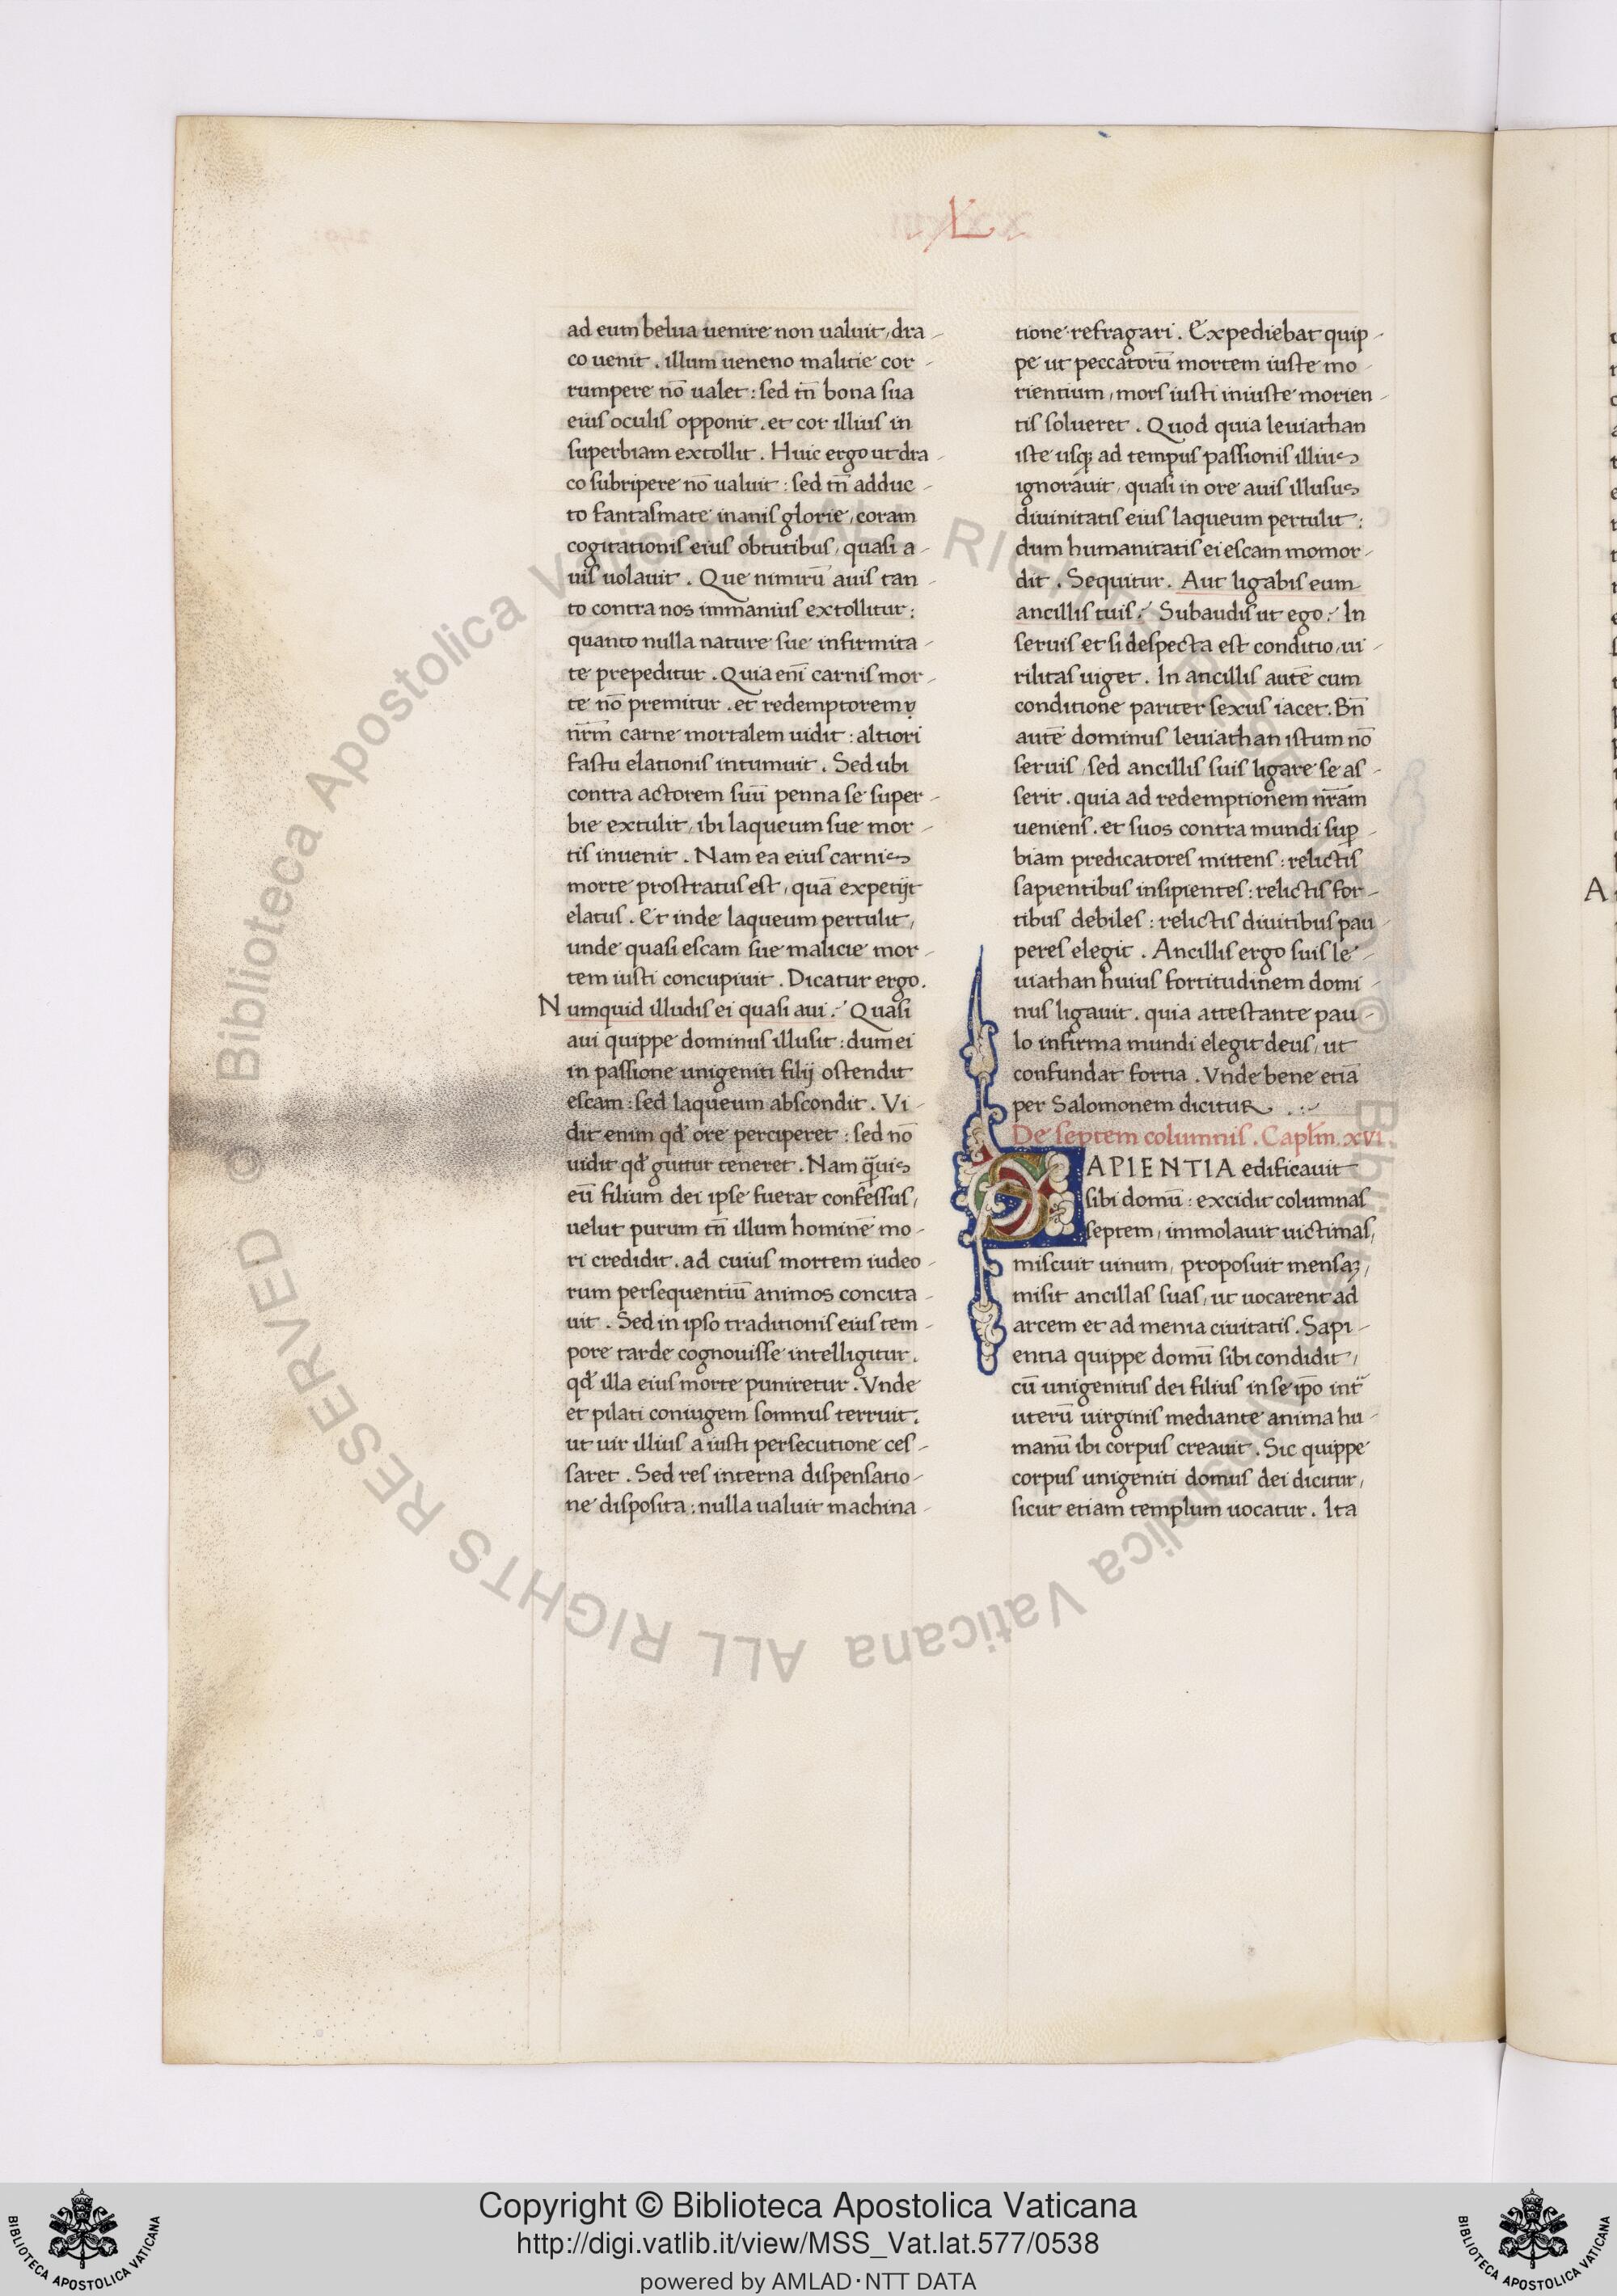 L
ad eum belua uenire non ualuit, dra-
co uenit. illum ueneno malitie cor-
rumpere nō ualet: sed tn̄ bona sua
eius oculis opponit. et cor illius in
superbiam extollit. Huic ergo ut dra-
co subripere nō ualuit: sed tn̄ adduc-
to fantasmate inanis glorie, coram
cogitationis eius obtutibus, quasi a-
uis uolauit. Que nimirū auis tan-
to contra nos immanius extollitur:
quanto nulla nature sue infirmita-
te prepeditur. Quia eni̅ carnis mor-
te nō premitur. et redemptorem
nr̄m carne mortalem uidit: altiori
fastu elationis intumuit. Sed ubi
contra actorem suū penna se super-
bie extulit, ibi laqueum sue mor-
tis inuenit. Nam ea eius carnis
morte prostratus est, quā expetijt
elatus. Et inde laqueum pertulit,
unde quasi escam sue malicie mor-
tem iusti concupiuit. Dicatur ergo.
Numquid illudis ei quasi aui. Quasi
aui quippe dominus illusit: dum ei
in passione unigeniti filij ostendit
escam: sed laqueum abscondit. Vi-
dit enim qd̄ ore perciperet: sed nō
uidit qd̄ guttur teneret. Nam q̄uis
eū filium dei ipse fuerat confessus,
uelut purum tn̄ illum hominē mo-
ri credidit. ad cuius mortem iudeo-
rum persequentiū animos concita-
uit. Sed in ipso traditionis eius tem-
pore tarde cognouisse intelligitur.
qd̄ illa eius morte puniretur. Vnde
et pilati coniugem somnus terruit.
ut uir illius a iusti persecutione ces-
saret. Sed res interna dispensatio-
ne disposita: nulla ualuit machina-
tione refragari. Expediebat quip-
pe ut peccatorū mortem iuste mo-
rientium, mors iusti iniuste morien-
tis solueret. Quod quia leuiathan
iste usq; ad tempus passionis illius
ignorauit, quasi in ore auis illusus
diuinitatis eius laqueum pertulit:
dum humanitatis ei escam momor-
dit. Sequitur. Aut ligabis eum
ancillis tuis. Subaudis ut ego. In
seruis et si despecta est conditio, ui-
rilitas uiget. In ancillis autē cum
conditione pariter sexus iacet. Bn̄
autē dominus leuiathan istum nō
seruis, sed ancillis suis ligare se as-
serit. quia ad redemptionem nr̄am
ueniens. et suos contra mundi suꝑ-
biam predicatores mittens: relictis
sapientibus insipientes: relictis for-
tibus debiles: relictis diuitibus pau-
peres elegit. Ancillis ergo suis le-
uiathan huius fortitudinem domi-
nus ligauit. quia attestante pau-
lo infirma mundi elegit deus, ut
confundat fortia. Vnde bene etiā
per Salomonem dicitur
De septem columnis. Capl̄m. xvi.
SAPIENTIA edificauit
sibi domū: excidit columnas
septem, immolauit uictimas,
miscuit uinum, proposuit mensaꝫ,
misit ancillas suas, ut uocarent ad
arcem et ad menia ciuitatis. Sapi-
entia quippe domū sibi condidit,
cū unigenitus dei filius in se ip̄o int̄
uterū uirginis mediante anima hu-
manū ibi corpus creauit. Sic quippe
corpus unigeniti domus dei dicitur,
sicut etiam templum uocatur. Ita
A
© Biblioteca Apostolica Vaticana ALL RIGHTS RESERVED © Biblioteca Apostolica Vaticana ALL RIGHTS RESERVED
Copyright © Biblioteca Apostolica Vaticana
http://digi.vatlib.it/view/MSS_Vat.lat.577/0538
powered by AMLAD·NTT DATA
BIBLIOTECA APOSTOLICA VATICANA
BIBLIOTECA APOSTOLICA VATICANA